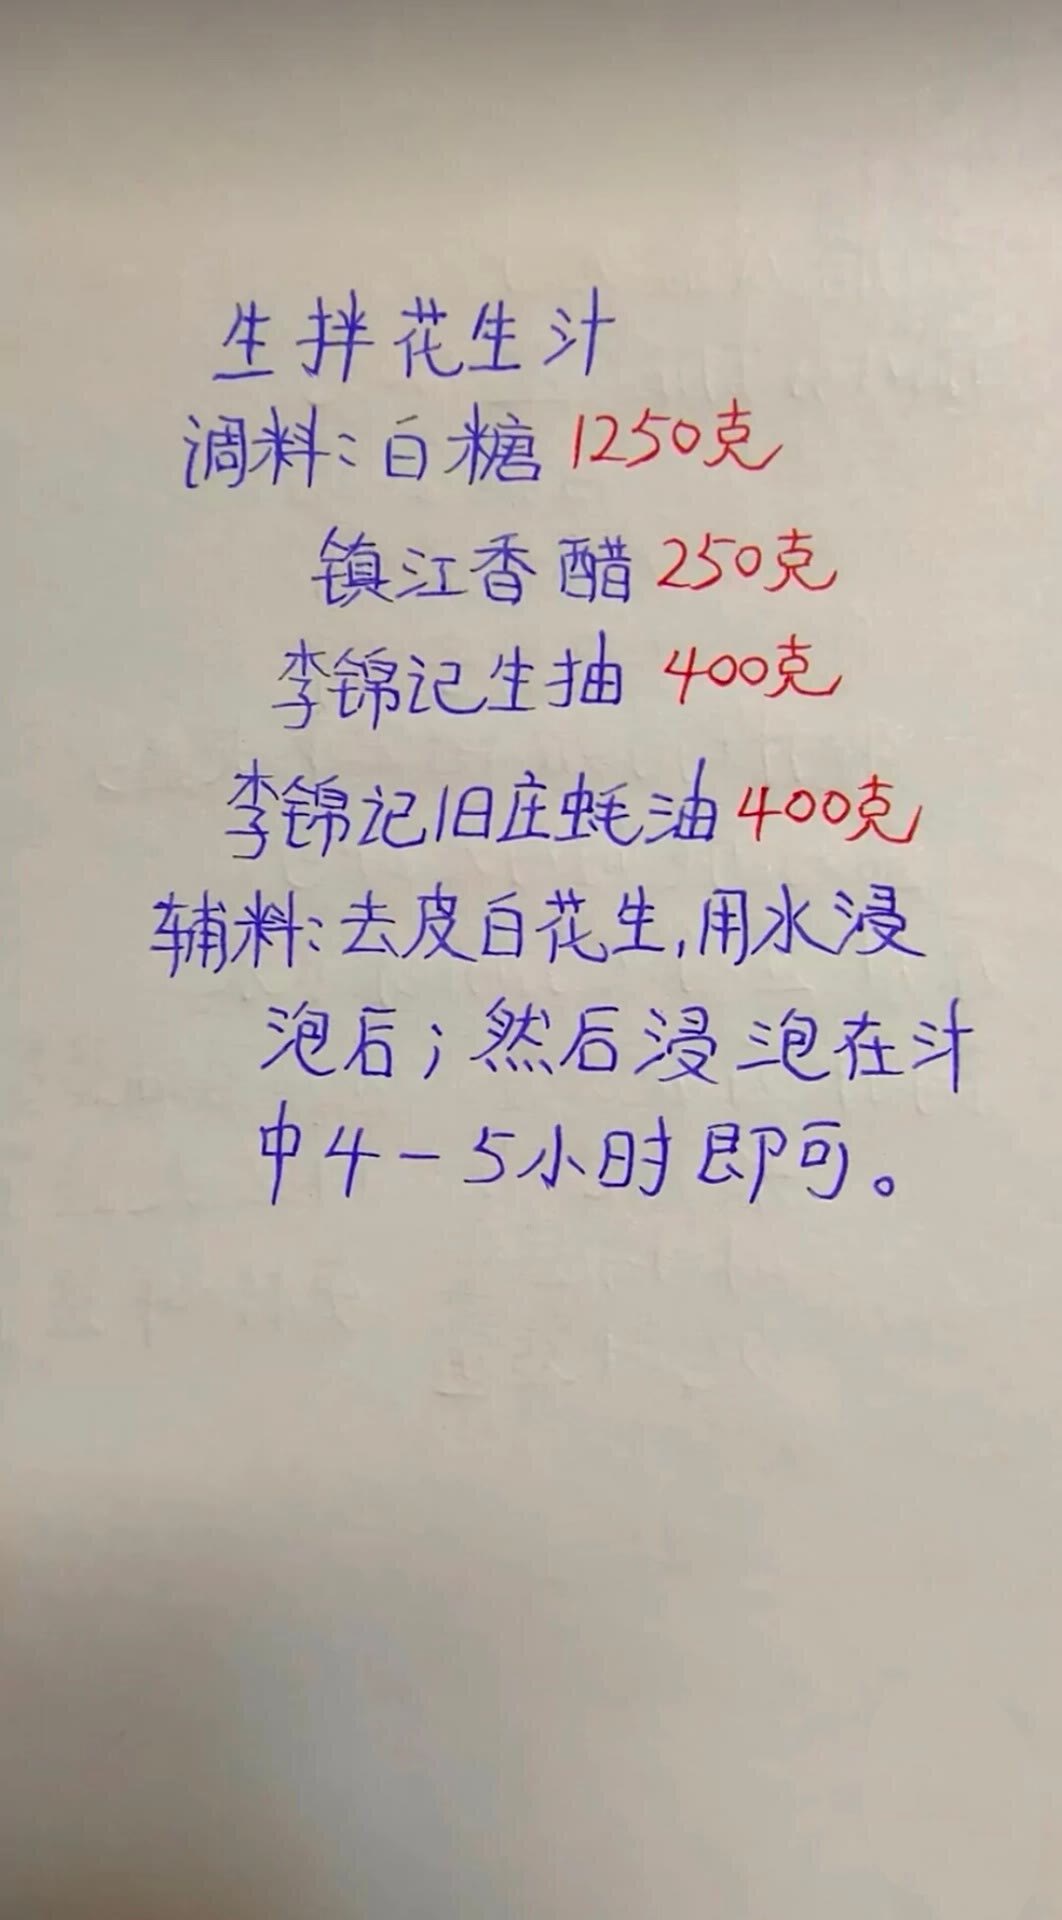 生拌花生汁
调料：白糖 1250克
镇江香醋 250克
李锦记生抽 400克
李锦记旧庄蚝油 400克
辅料：去皮白花生,用水浸
泡后；然后浸泡在汁
中4-5小时即可。